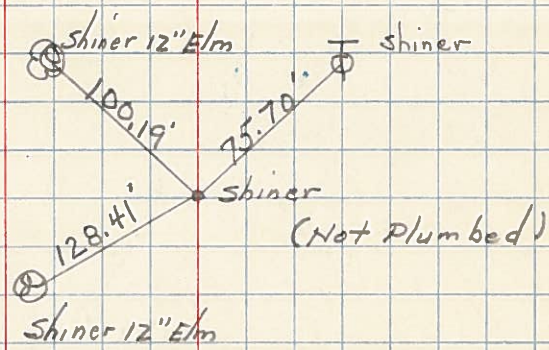 Shiner 12" Elm
Shiner
100.19'
75.70'
Shiner
128.41'
(Not Plumbed)
Shiner 12" Elm